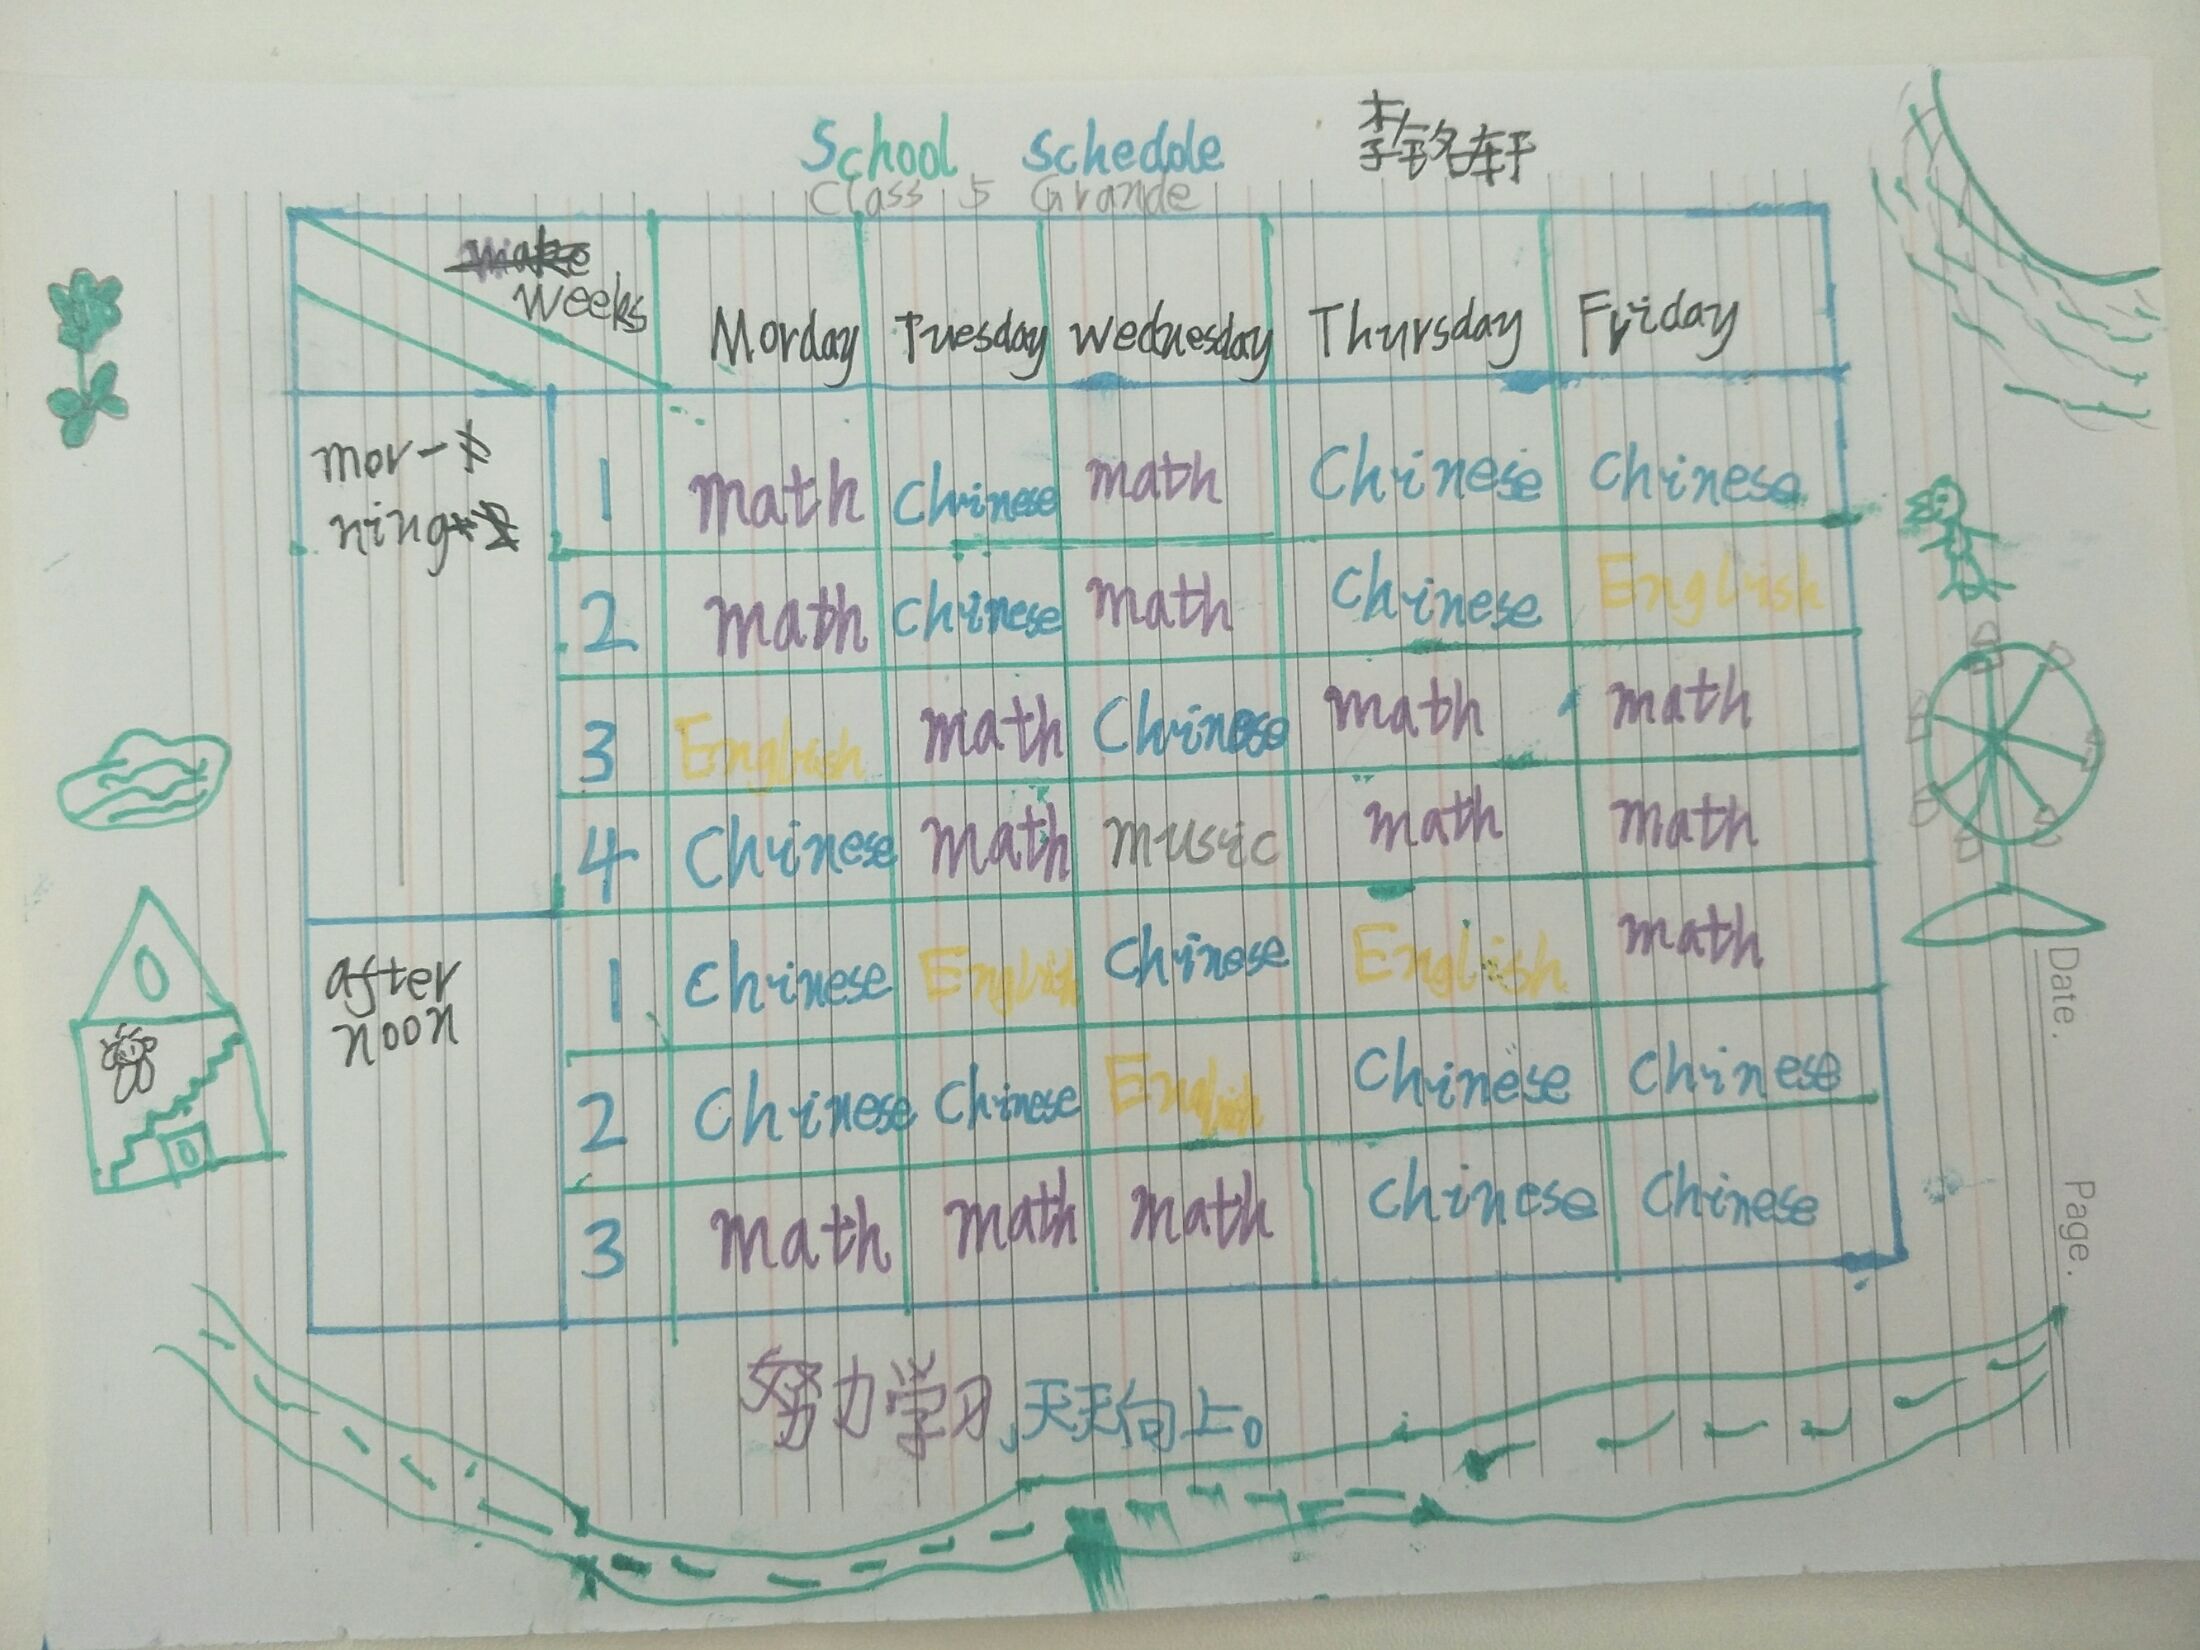 School Schedule 李铭轩
Class 5 Grande
Weeks
Monday Tuesday Wednesday Thursday Friday
mor-
ning
1 math Chinese math Chinese Chinese
2 math Chinese math Chinese English
3 English math Chinese math math
4 Chinese math music math math
after
noon
1 Chinese English Chinese English math
2 Chinese Chinese English Chinese Chinese
3 math math math Chinese Chinese
努力学习,天天向上。
Date.
Page.